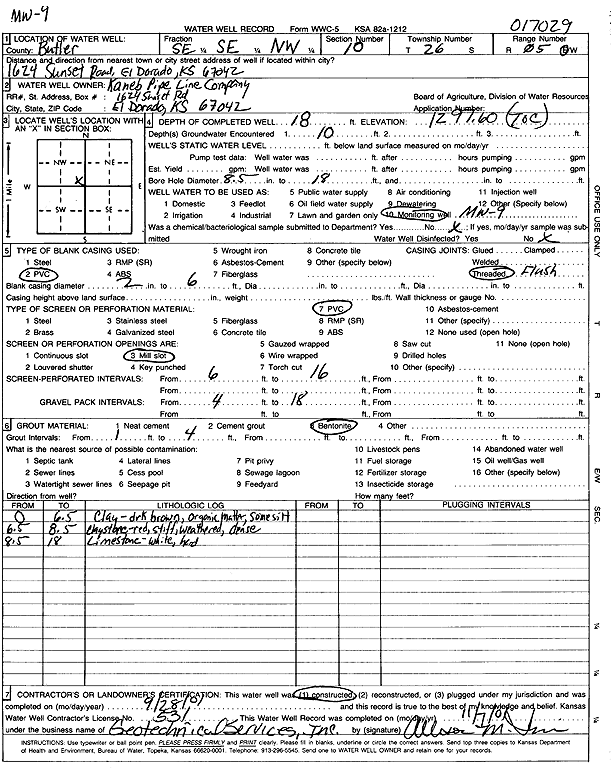 MW-9
WATER WELL RECORD Form WWC-5 KSA 82a-1212
017029
1 LOCATION OF WATER WELL: Fraction Section Number Township Number Range Number
County: Butler SE ¼ SE ¼ NW ¼ 10 T 26 S R 05 E/W
Distance and direction from nearest town or city street address of well if located within city?
1624 Sunset Road, El Dorado, KS 67042
2 WATER WELL OWNER: Kaneb Pipe Line Company
RR#, St. Address, Box # : 1624 Sunset Rd Board of Agriculture, Division of Water Resources
City, State, ZIP Code : El Dorado, KS 67042 Application Number:
3 LOCATE WELL'S LOCATION WITH AN "X" IN SECTION BOX:
N
NW NE
X
W E
SW SE
S
1 Mile
4 DEPTH OF COMPLETED WELL 18 ft. ELEVATION: 1297.60 (TOC)
Depth(s) Groundwater Encountered 1. 10 ft. 2. ft. 3. ft.
WELL'S STATIC WATER LEVEL ft. below land surface measured on mo/day/yr
Pump test data: Well water was ft. after hours pumping gpm
Est. Yield gpm: Well water was ft. after hours pumping gpm
Bore Hole Diameter 8.5 in. to 18 ft., and in. to ft.
WELL WATER TO BE USED AS: 5 Public water supply 8 Air conditioning 11 Injection well
1 Domestic 3 Feedlot 6 Oil field water supply 9 Dewatering 12 Other (Specify below)
2 Irrigation 4 Industrial 7 Lawn and garden only 10 Monitoring well MW-9
Was a chemical/bacteriological sample submitted to Department? Yes No X; If yes, mo/day/yr sample was submitted Water Well Disinfected? Yes No X
5 TYPE OF BLANK CASING USED: 5 Wrought iron 8 Concrete tile CASING JOINTS: Glued Clamped
1 Steel 3 RMP (SR) 6 Asbestos-Cement 9 Other (specify below) Welded
2 PVC 4 ABS 7 Fiberglass Threaded Flush
Blank casing diameter 2 in. to 6 ft., Dia in. to ft., Dia in. to ft.
Casing height above land surface in., weight lbs./ft. Wall thickness or gauge No.
TYPE OF SCREEN OR PERFORATION MATERIAL: 7 PVC 10 Asbestos-cement
1 Steel 3 Stainless steel 5 Fiberglass 8 RMP (SR) 11 Other (specify)
2 Brass 4 Galvanized steel 6 Concrete tile 9 ABS 12 None used (open hole)
SCREEN OR PERFORATION OPENINGS ARE: 5 Gauzed wrapped 8 Saw cut 11 None (open hole)
1 Continuous slot 3 Mill slot 6 Wire wrapped 9 Drilled holes
2 Louvered shutter 4 Key punched 7 Torch cut 10 Other (specify)
SCREEN-PERFORATED INTERVALS: From 6 ft. to 16 ft., From ft. to ft.
From ft. to ft., From ft. to ft.
GRAVEL PACK INTERVALS: From 4 ft. to 18 ft., From ft. to ft.
From ft. to ft., From ft. to ft.
6 GROUT MATERIAL: 1 Neat cement 2 Cement grout 3 Bentonite 4 Other
Grout Intervals: From 1 ft. to 4 ft., From ft. to ft., From ft. to ft.
What is the nearest source of possible contamination: 10 Livestock pens 14 Abandoned water well
1 Septic tank 4 Lateral lines 7 Pit privy 11 Fuel storage 15 Oil well/Gas well
2 Sewer lines 5 Cess pool 8 Sewage lagoon 12 Fertilizer storage 16 Other (specify below)
3 Watertight sewer lines 6 Seepage pit 9 Feedyard 13 Insecticide storage
Direction from well? How many feet?
FROM TO LITHOLOGIC LOG FROM TO PLUGGING INTERVALS
0 6.5 Clay-drk brown, organic matter, some silt
6.5 8.5 claystone-red, stiff, weathered, dense
8.5 18 Limestone-white, hrd
7 CONTRACTOR'S OR LANDOWNER'S CERTIFICATION: This water well was (1) constructed, (2) reconstructed, or (3) plugged under my jurisdiction and was
completed on (mo/day/year) 9/28/01 and this record is true to the best of my knowledge and belief. Kansas
Water Well Contractor's License No. 531 This Water Well Record was completed on (mo/day/yr) 11/7/01
under the business name of Geotechnical Services, Inc. by (signature)
INSTRUCTIONS: Use typewriter or ball point pen. PLEASE PRESS FIRMLY and PRINT clearly. Please fill in blanks, underline or circle the correct answers. Send top three copies to Kansas Department
of Health and Environment, Bureau of Water, Topeka, Kansas 66620-0001. Telephone: 913-296-5545. Send one to WATER WELL OWNER and retain one for your records.
OFFICE USE ONLY
T
R
E/W
SEC.
¼
¼
¼